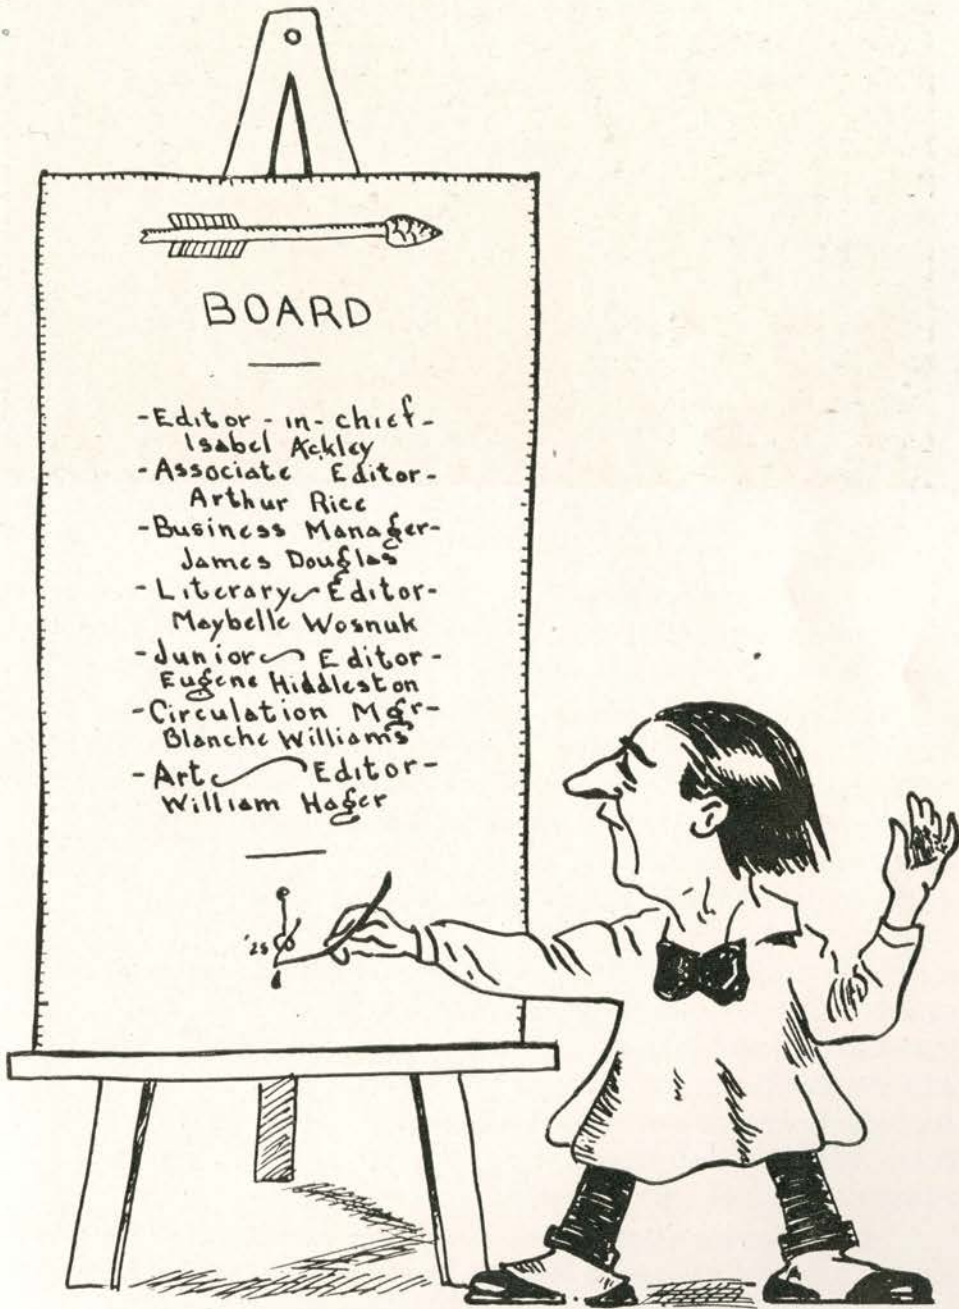 BOARD
-Editor-in-chief-
Isabel Ackley
-Associate Editor-
Arthur Rice
-Business Manager-
James Douglas
-Literary Editor-
Maybelle Wosnuk
-Junior Editor-
Eugene Hiddleston
-Circulation Mgr-
Blanche Williams
-Art Editor-
William Hager
'25